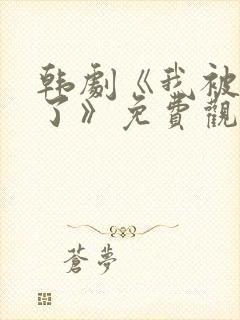 韩劇《我被
了》免費觀
蒼夢